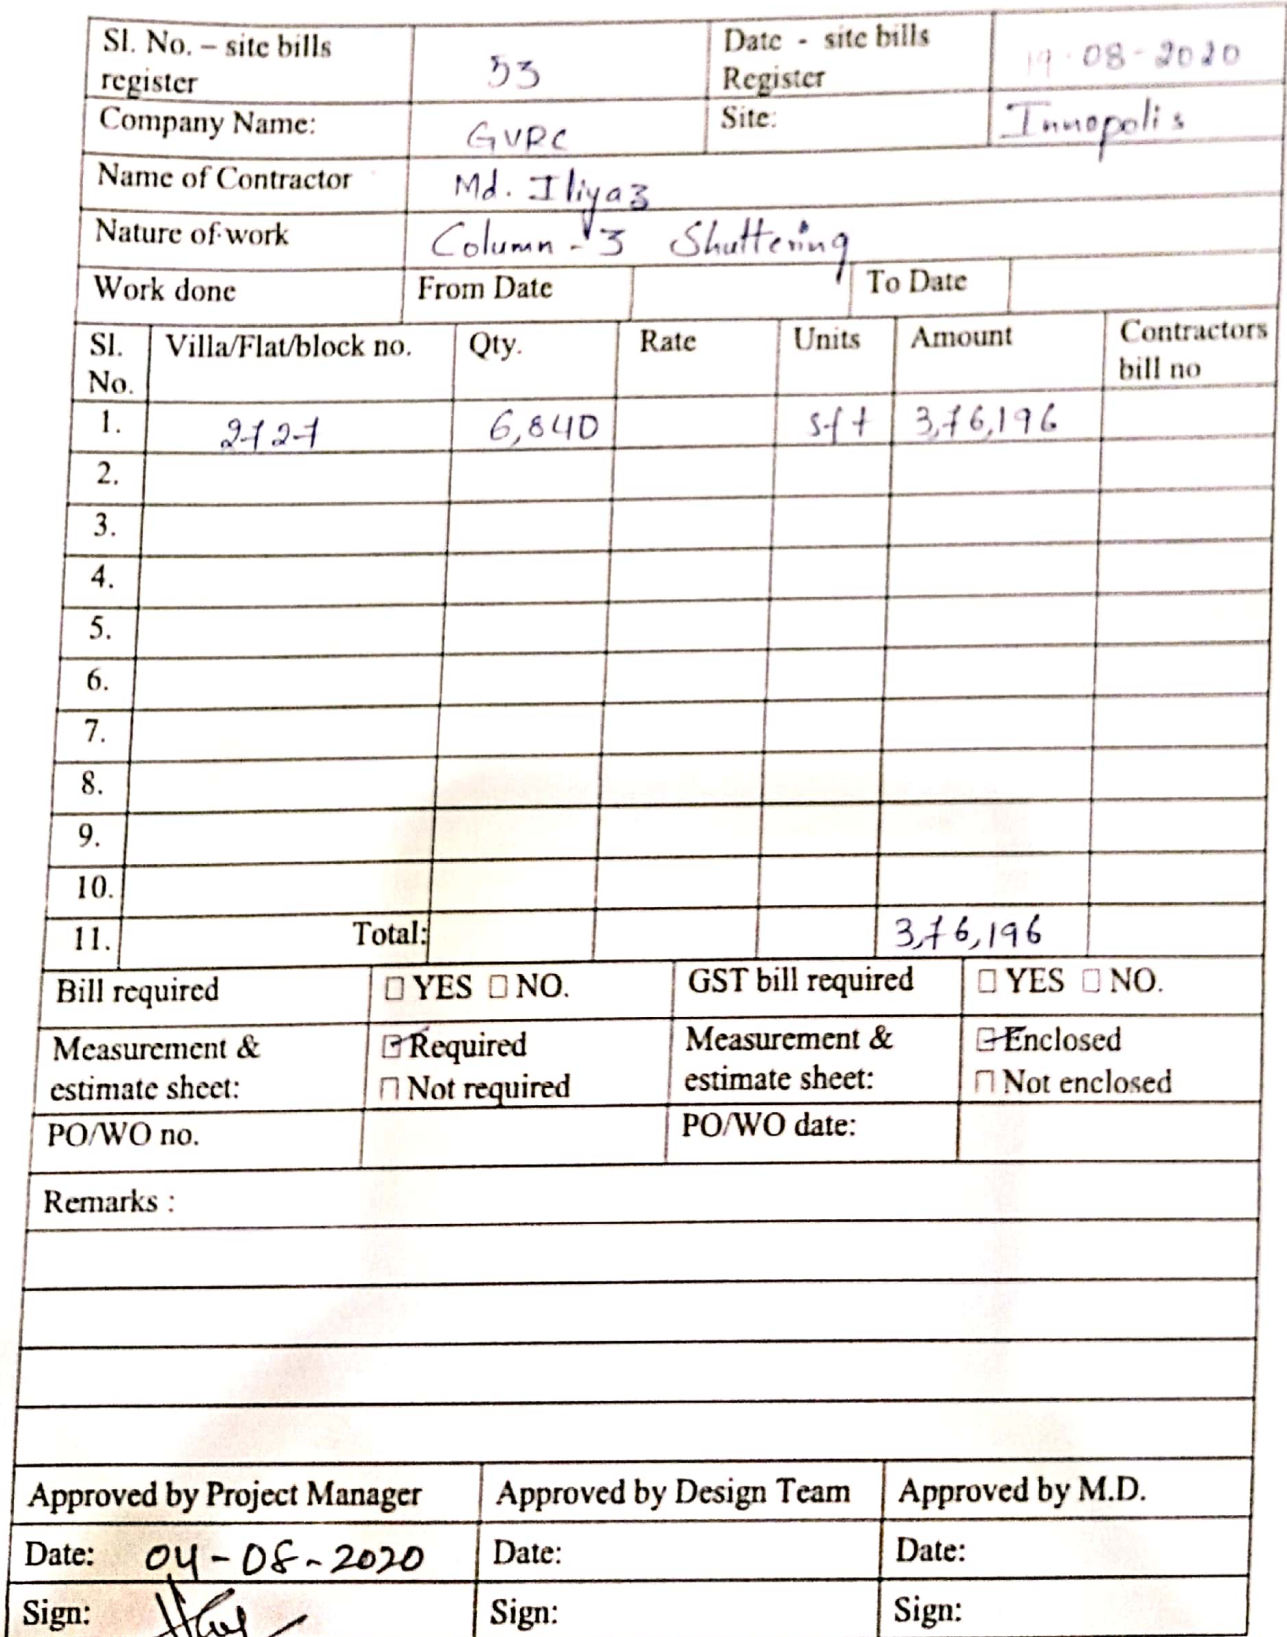 Sl. No. – site bills register 53 Date - site bills Register 19-08-2020
Company Name: GVRC Site: Innopolis
Name of Contractor Md. Iliyaz
Nature of work Column - 3 Shuttering
Work done From Date To Date
Sl. No. Villa/Flat/block no. Qty. Rate Units Amount Contractors bill no
1. 2727 6,840 sft 3,76,196
2.
3.
4.
5.
6.
7.
8.
9.
10.
11. Total: 3,76,196
Bill required ☐ YES ☐ NO. GST bill required ☐ YES ☐ NO.
Measurement & estimate sheet: ☑ Required ☐ Not required Measurement & estimate sheet: ☑ Enclosed ☐ Not enclosed
PO/WO no. PO/WO date:
Remarks :
Approved by Project Manager Approved by Design Team Approved by M.D.
Date: 04-08-2020 Date: Date:
Sign: Sign: Sign: